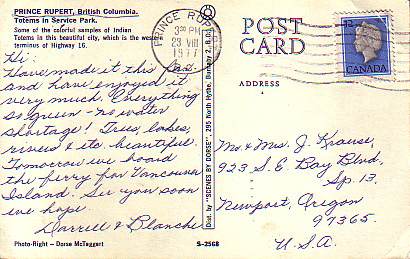 PRINCE RUPERT, British Columbia.
Totems in Service Park.
Some of the colorful samples of Indian
Totems in this beautiful city, which is the west
terminus of Highway 16.
Hi:
Have made it this far
and have enjoyed it
very much. Everything
so green - no water
shortage! Trees, lakes,
rivers & etc. beautiful.
Tomorrow we board
the ferry for Vancouver
Island. See you soon
we hope
Darrell & Blanche
Photo-Right - Dorse McTaggart
S-2568
Dist. by "SCENES BY DORSE", 295 North Hythe, Burnaby 2, B.C.
PRINCE RUPERT
PM
23 VIII
1977
POST
CARD
ADDRESS
12
CANADA
Mr. & Mrs. J. Krause,
923 S. E. Bay Blvd,
Sp. 13.
Newport, Oregon
97365.
U.S.A.